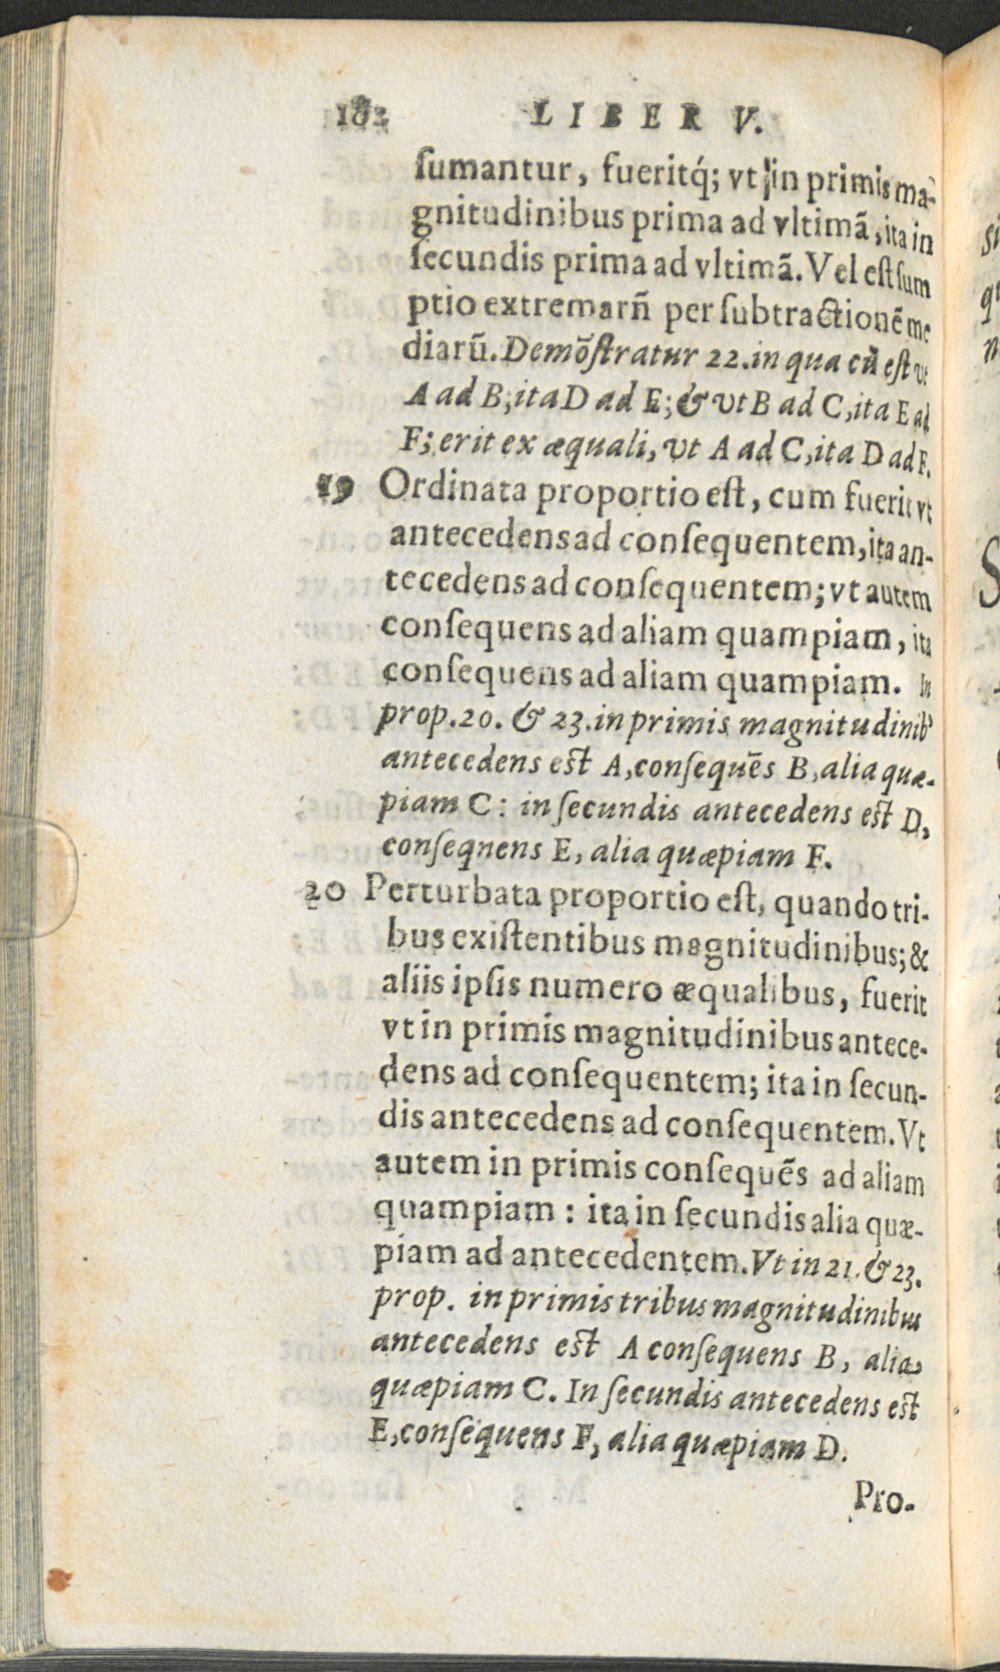 182 LIBER V.
ſumantur, fueritq́; vt in primis ma-
gnitudinibus prima ad vltimã, ita in
ſecundis prima ad vltimã. Vel eſt ſum
ptio extremarũ per ſubtractionẽ me
diarũ. Demõſtratur 22. in qua cũ eſt vt
A ad B, ita D ad E; & vt B ad C, ita E ad
F; erit ex æquali, vt A ad C, ita D ad F.
19 Ordinata proportio eſt, cum fuerit vt
antecedens ad conſequentem, ita an-
tecedens ad conſequentem; vt autem
conſequens ad aliam quampiam, ita
conſequens ad aliam quampiam. In
prop. 20. & 23. in primis magnitudinib'
antecedens eſt A, conſequẽs B, alia quæ-
piam C: in ſecundis antecedens eſt D,
conſeqnens E, alia quæpiam F.
20 Perturbata proportio eſt, quando tri-
bus exiſtentibus magnitudinibus; &
aliis ipſis numero æqualibus, fuerit
vt in primis magnitudinibus antece-
dens ad conſequentem; ita in ſecun-
dis antecedens ad conſequentem. Vt
autem in primis conſequẽs ad aliam
quampiam: ita in ſecundis alia quæ-
piam ad antecedentem. Vt in 21. & 23.
prop. in primis tribus magnitudinibus
antecedens eſt A conſequens B, alia
quæpiam C. In ſecundis antecedens eſt
E, conſequens F, alia quæpiam D.
Pro-